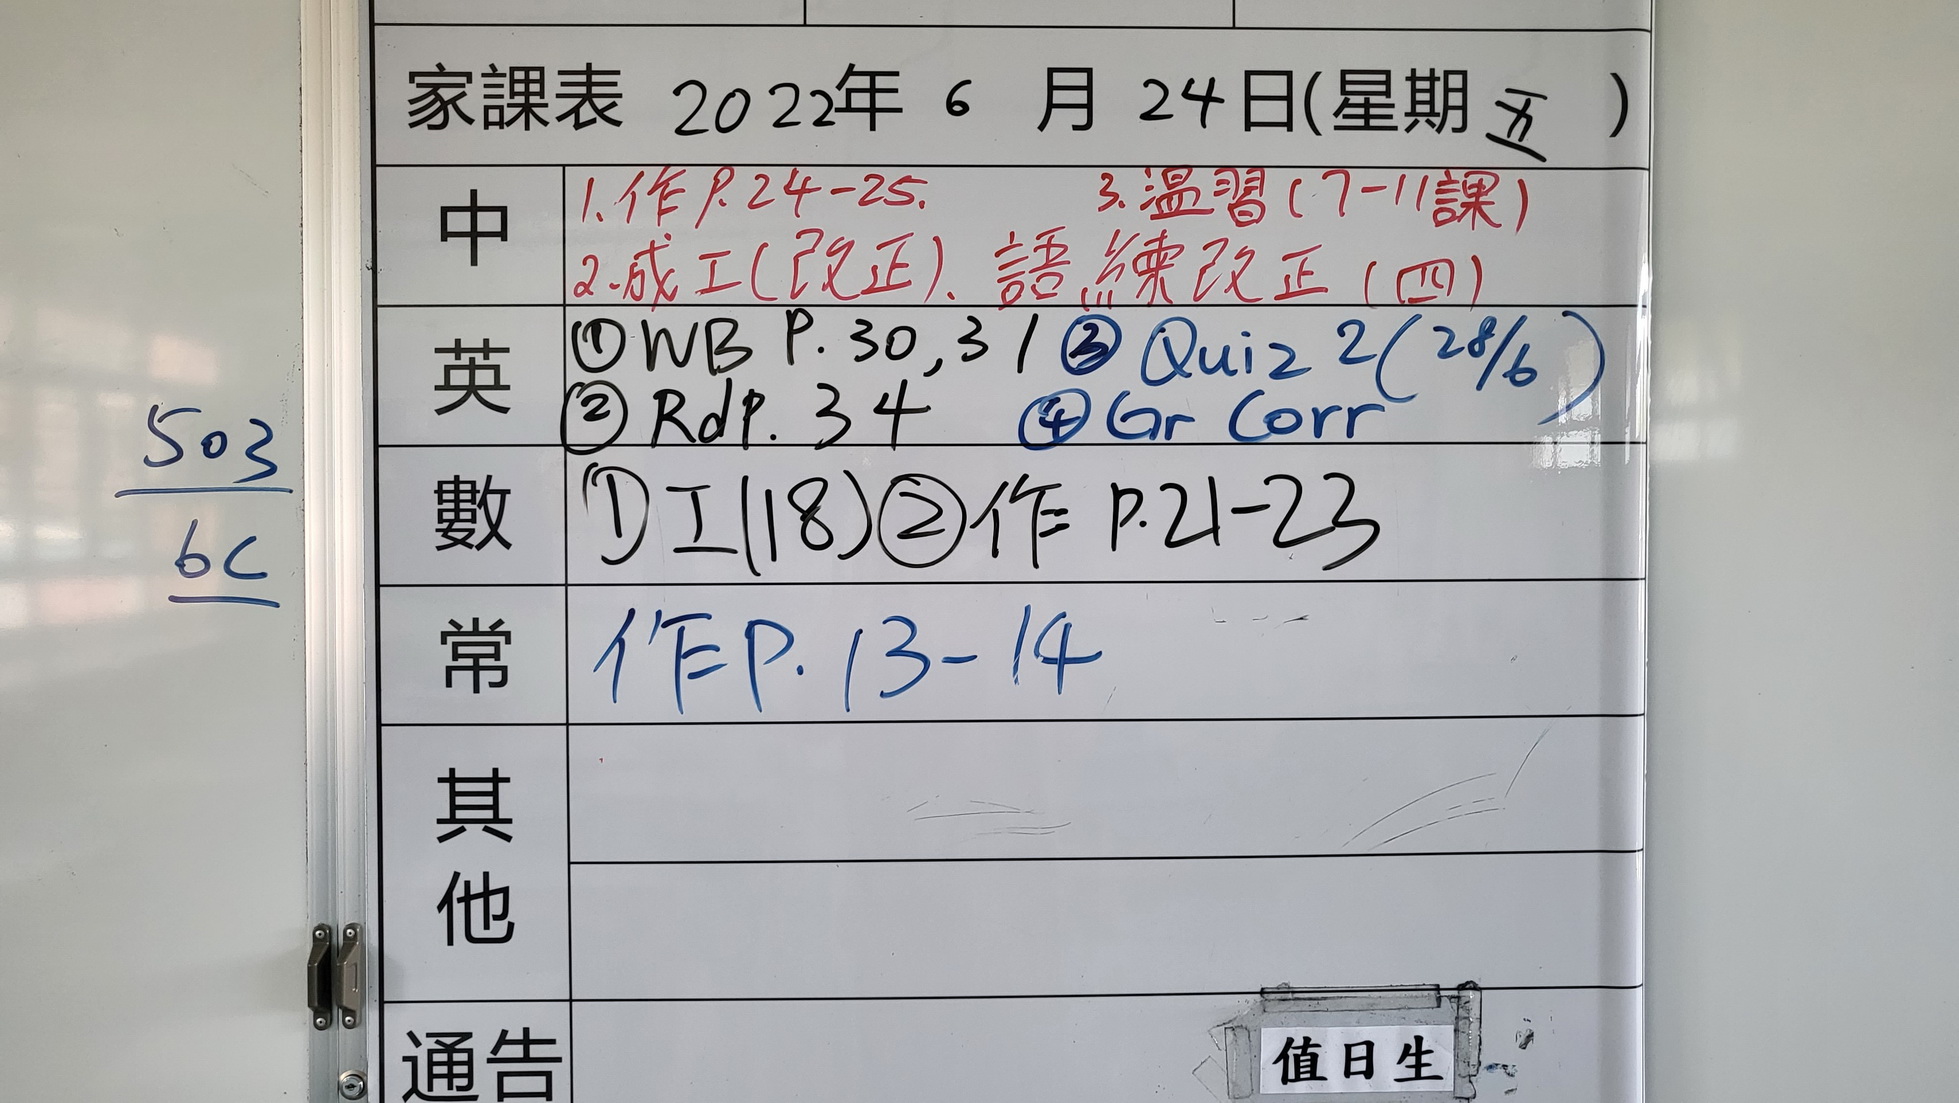 家課表 2022年 6 月 24日(星期五)
中
1.作P.24-25. 3.温習(7-11課)
2.成工(改正)、語練改正(四)
英
①WB P.30,31 ③Quiz 2(28/6)
②Rd P.34 ④Gr Corr
數
①工(18)②作 P.21-23
常
作P.13-14
其他
通告
值日生
503
6C